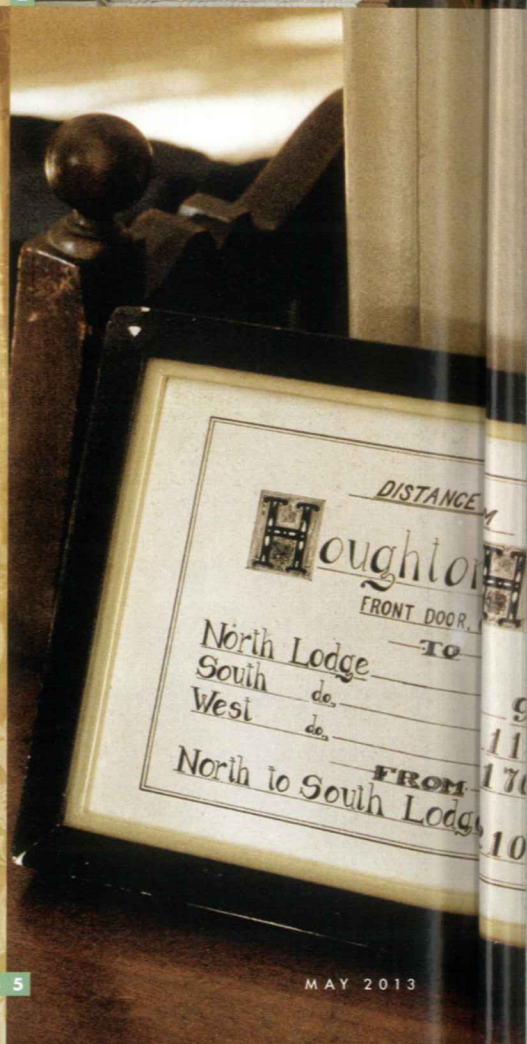 DISTANCE M
Houghton H
FRONT DOOR,
TO
North Lodge 9
South do. 11
West do. 170
FROM
North to South Lodge 10
5
MAY 2013